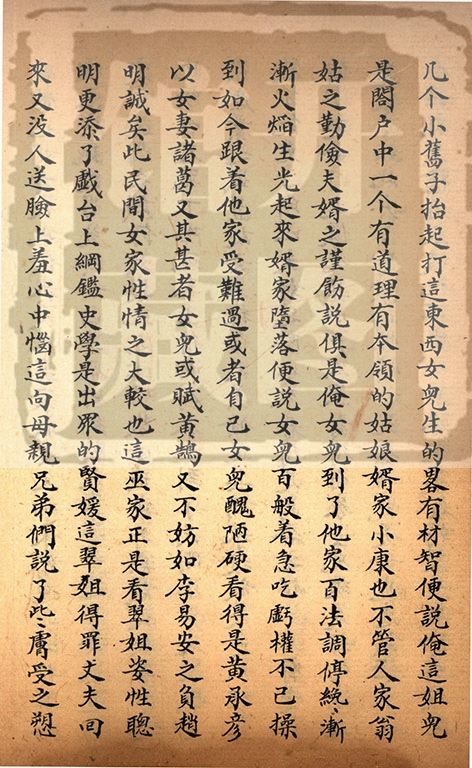 几个小舊子抬起打這東西女兒生的畧有材智便說俺這姐兒
是閤户中一个有道理有夲領的姑娘婿家小康也不管人家翁
姑之勤儉夫婿之謹飭説俱是俺女兒到了他家百法調停纔漸
漸火焰生光起來婿家墮落便説女兒百般着急吃虧權不已操
到如今跟着他家受難過或者自己女兒醜陋硬看得是黄承彦
以女妻諸葛又其甚者女兒或賦黄鵠又不妨如李易安之負趙
明誠矣此民間女家性情之大較也這巫家正是看翠姐姿性聰
明更添了戲台上綱鑑史學是出眾的賢媛這翠姐得罪丈夫回
來又没人送臉上羞心中惱這向母親兄弟們説了些膚受之愬